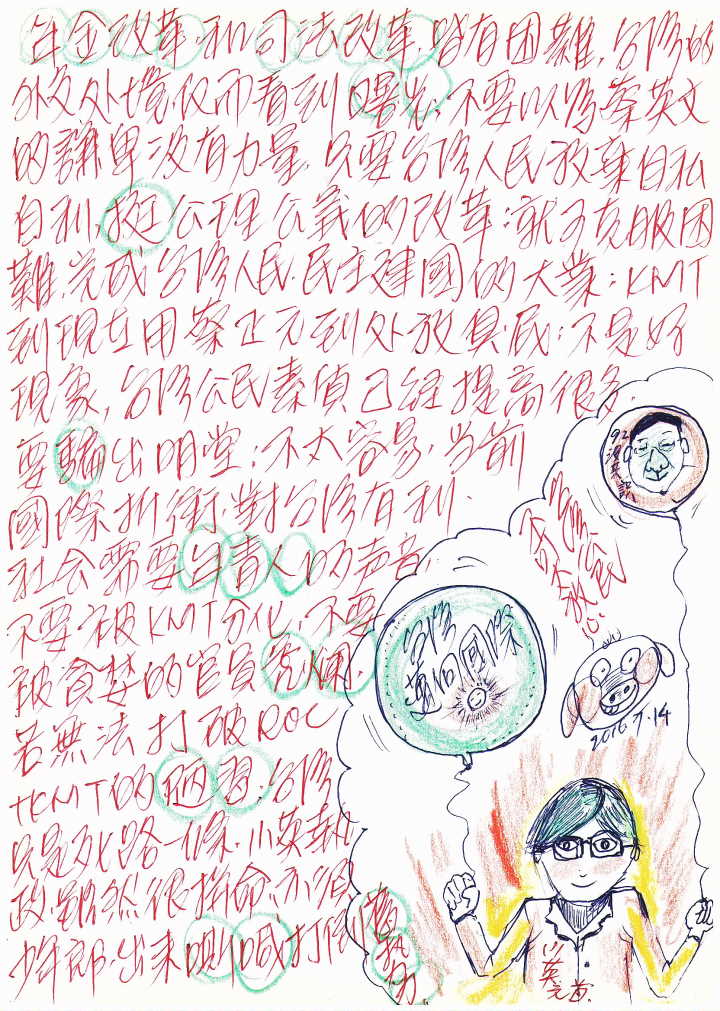 年金改革和司法改革,皆有困難,台灣的
外交處境,反而看到曙光,不要以為蔡英文
的謙卑沒有力量,只要台灣人民放棄自私
自利,挺公理公義的改革:就可克服困
難,完成台灣人民.民主建國的大業:KMT
到現在用蔡正元到處放臭.屁:不是好
現象,台灣公民素質已經提高很多.
要騙出明堂:不太容易.當前
國際折衝.對台灣有利.
社會需要年青人的声音.
不要被KMT分化.不要
被貪婪的官員
若無法打破ROC
+KMT的陋習:台灣
只是死路一條.小英執
政.雖然很拚命.亦須
少年郎.出來吶喊打倒
舊
92
台灣
邁向國際
公民
2016.7.14
小英